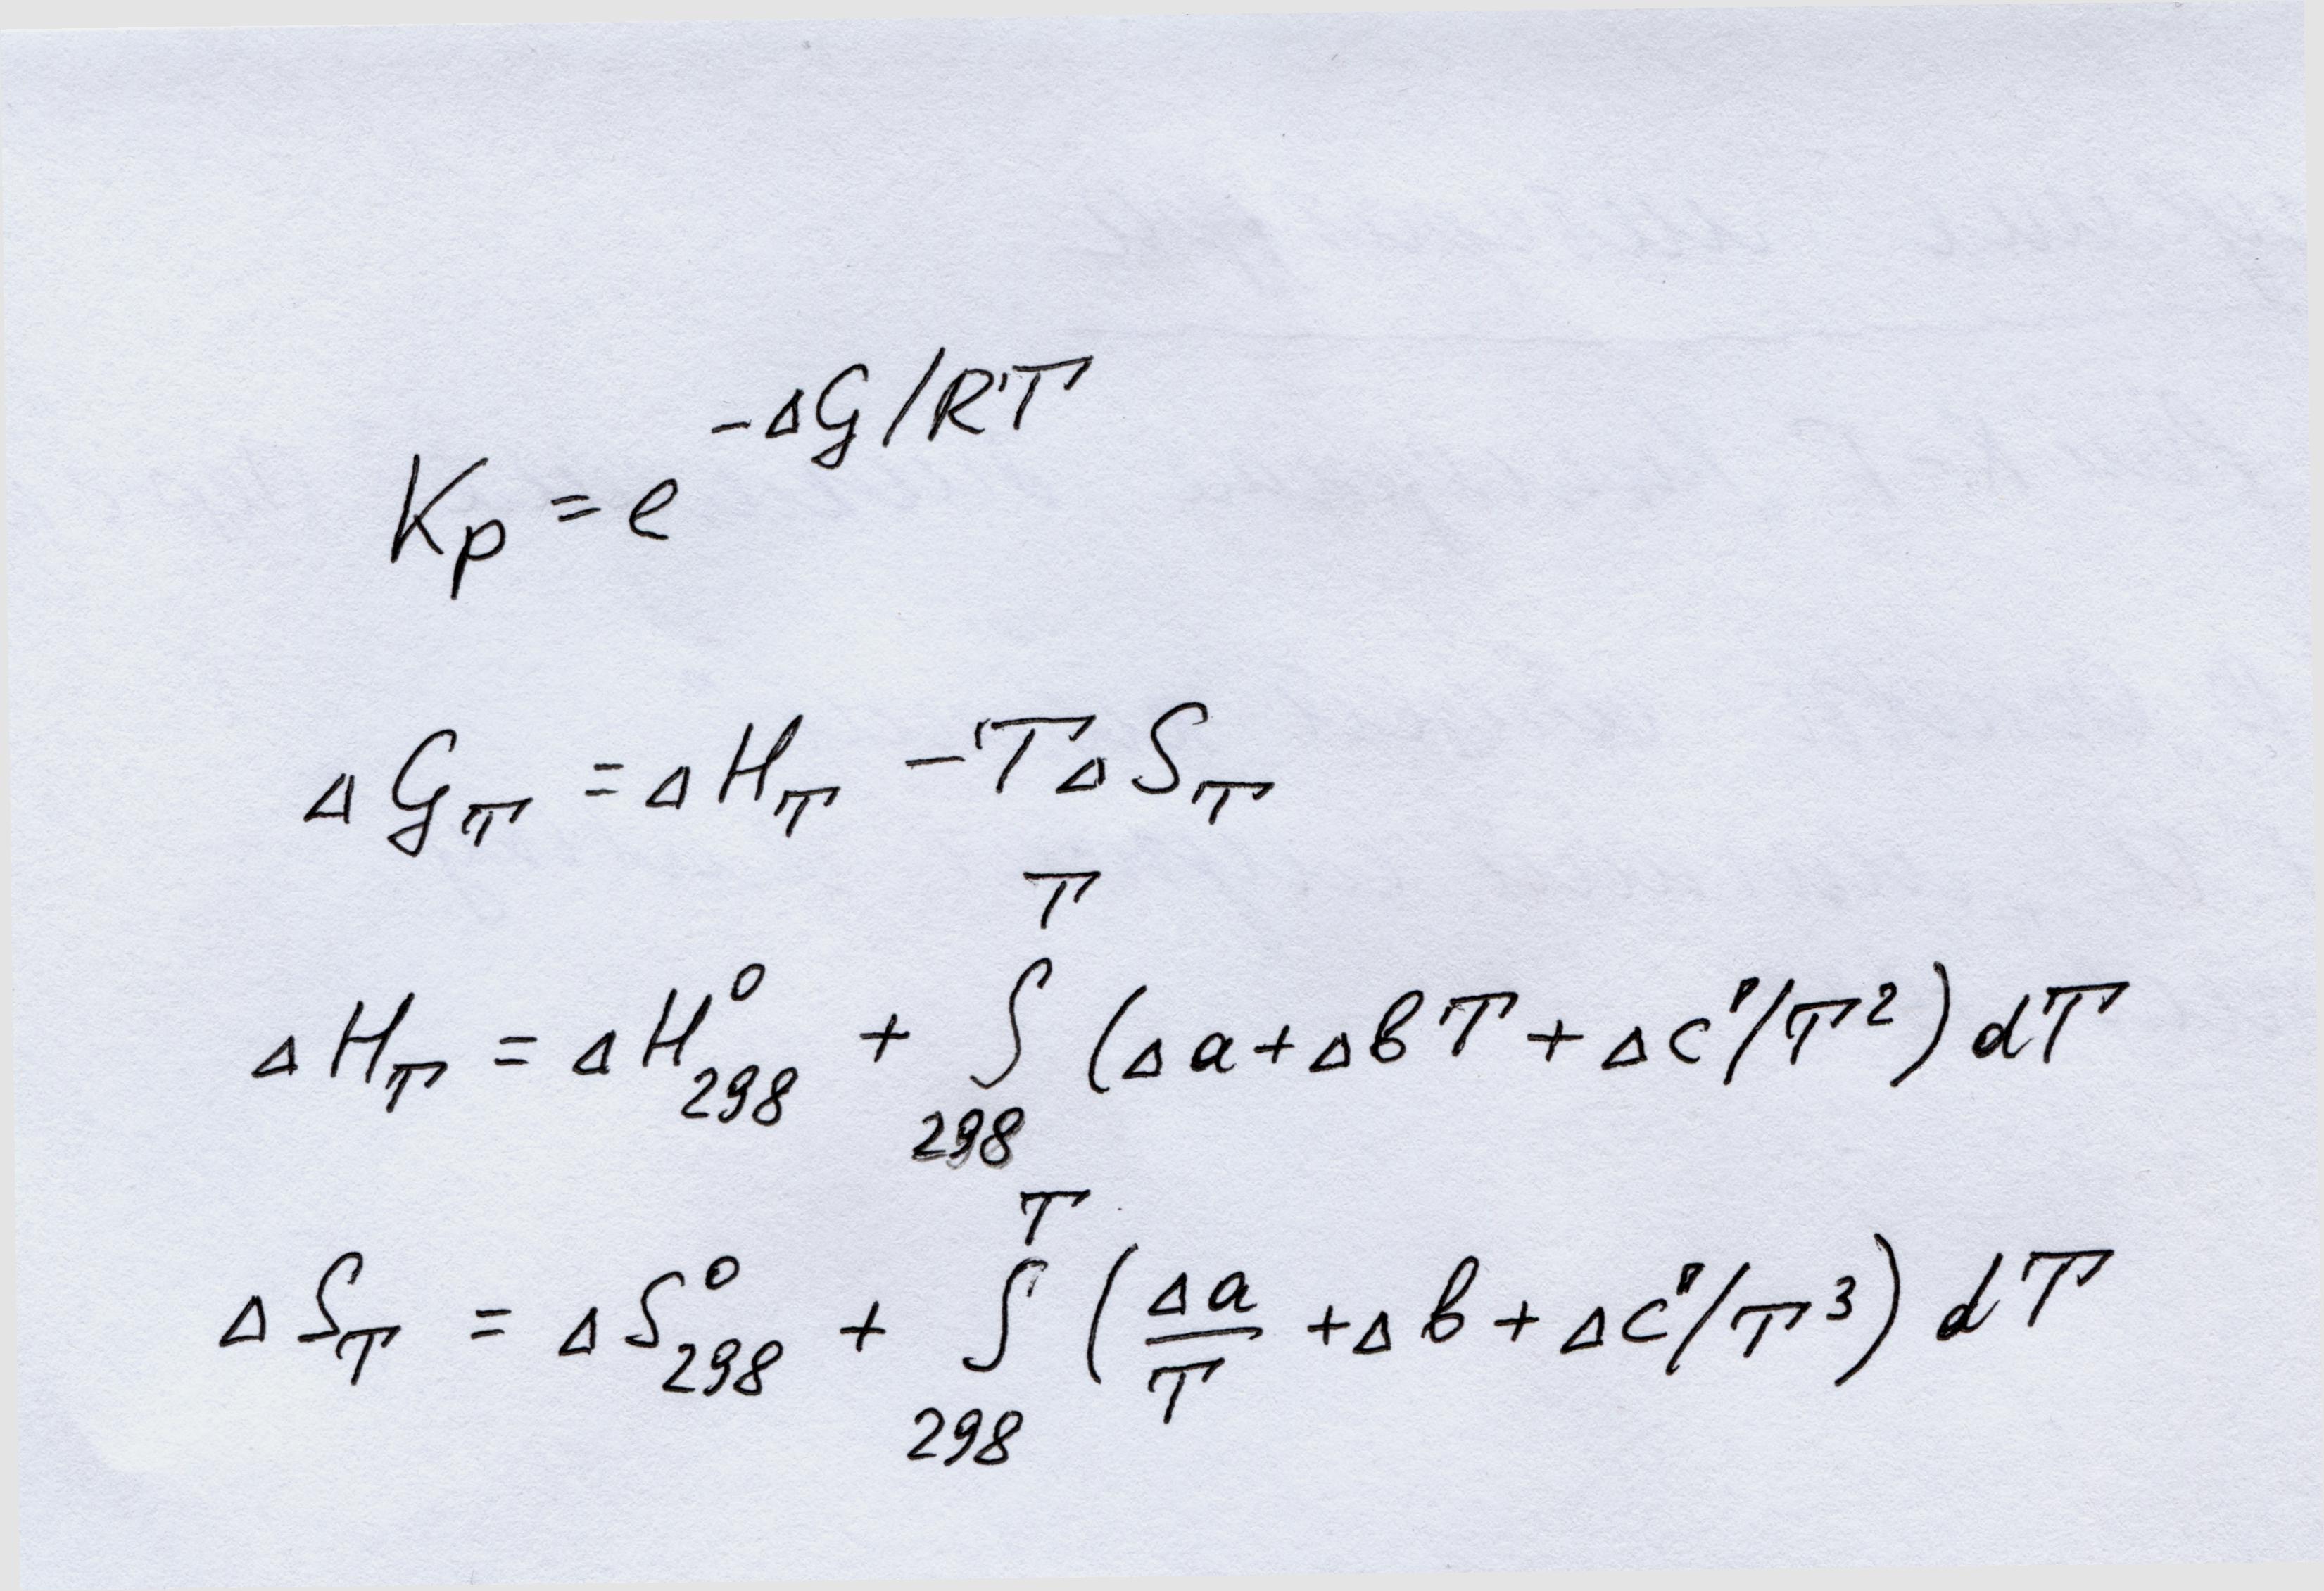 Kp = e^(-ΔG/RT)
ΔG_T = ΔH_T - TΔS_T
ΔH_T = ΔH⁰₂₉₈ + ∫₂₉₈^T (Δa + ΔbT + Δc'/T²) dT
ΔS_T = ΔS⁰₂₉₈ + ∫₂₉₈^T (Δa/T + Δb + Δc'/T³) dT